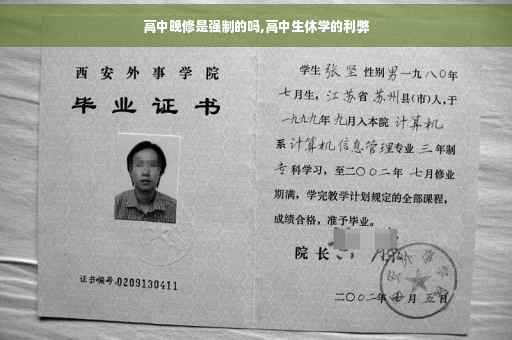 高中晚修是强制的吗,高中生休学的利弊
西安外事学院
毕业证书
证书编号:0209130411
学生 张坚 性别 男 一九八〇年
七月生,江苏省 苏州县(市)人,于
一九九九年 九月入本院 计算机
系 计算机信息管理专业 三 年制
专科学习,至二〇〇二年 七月修业
期满,学完教学计划规定的全部课程,
成绩合格,准予毕业。
院长
二〇〇二年 月 五日